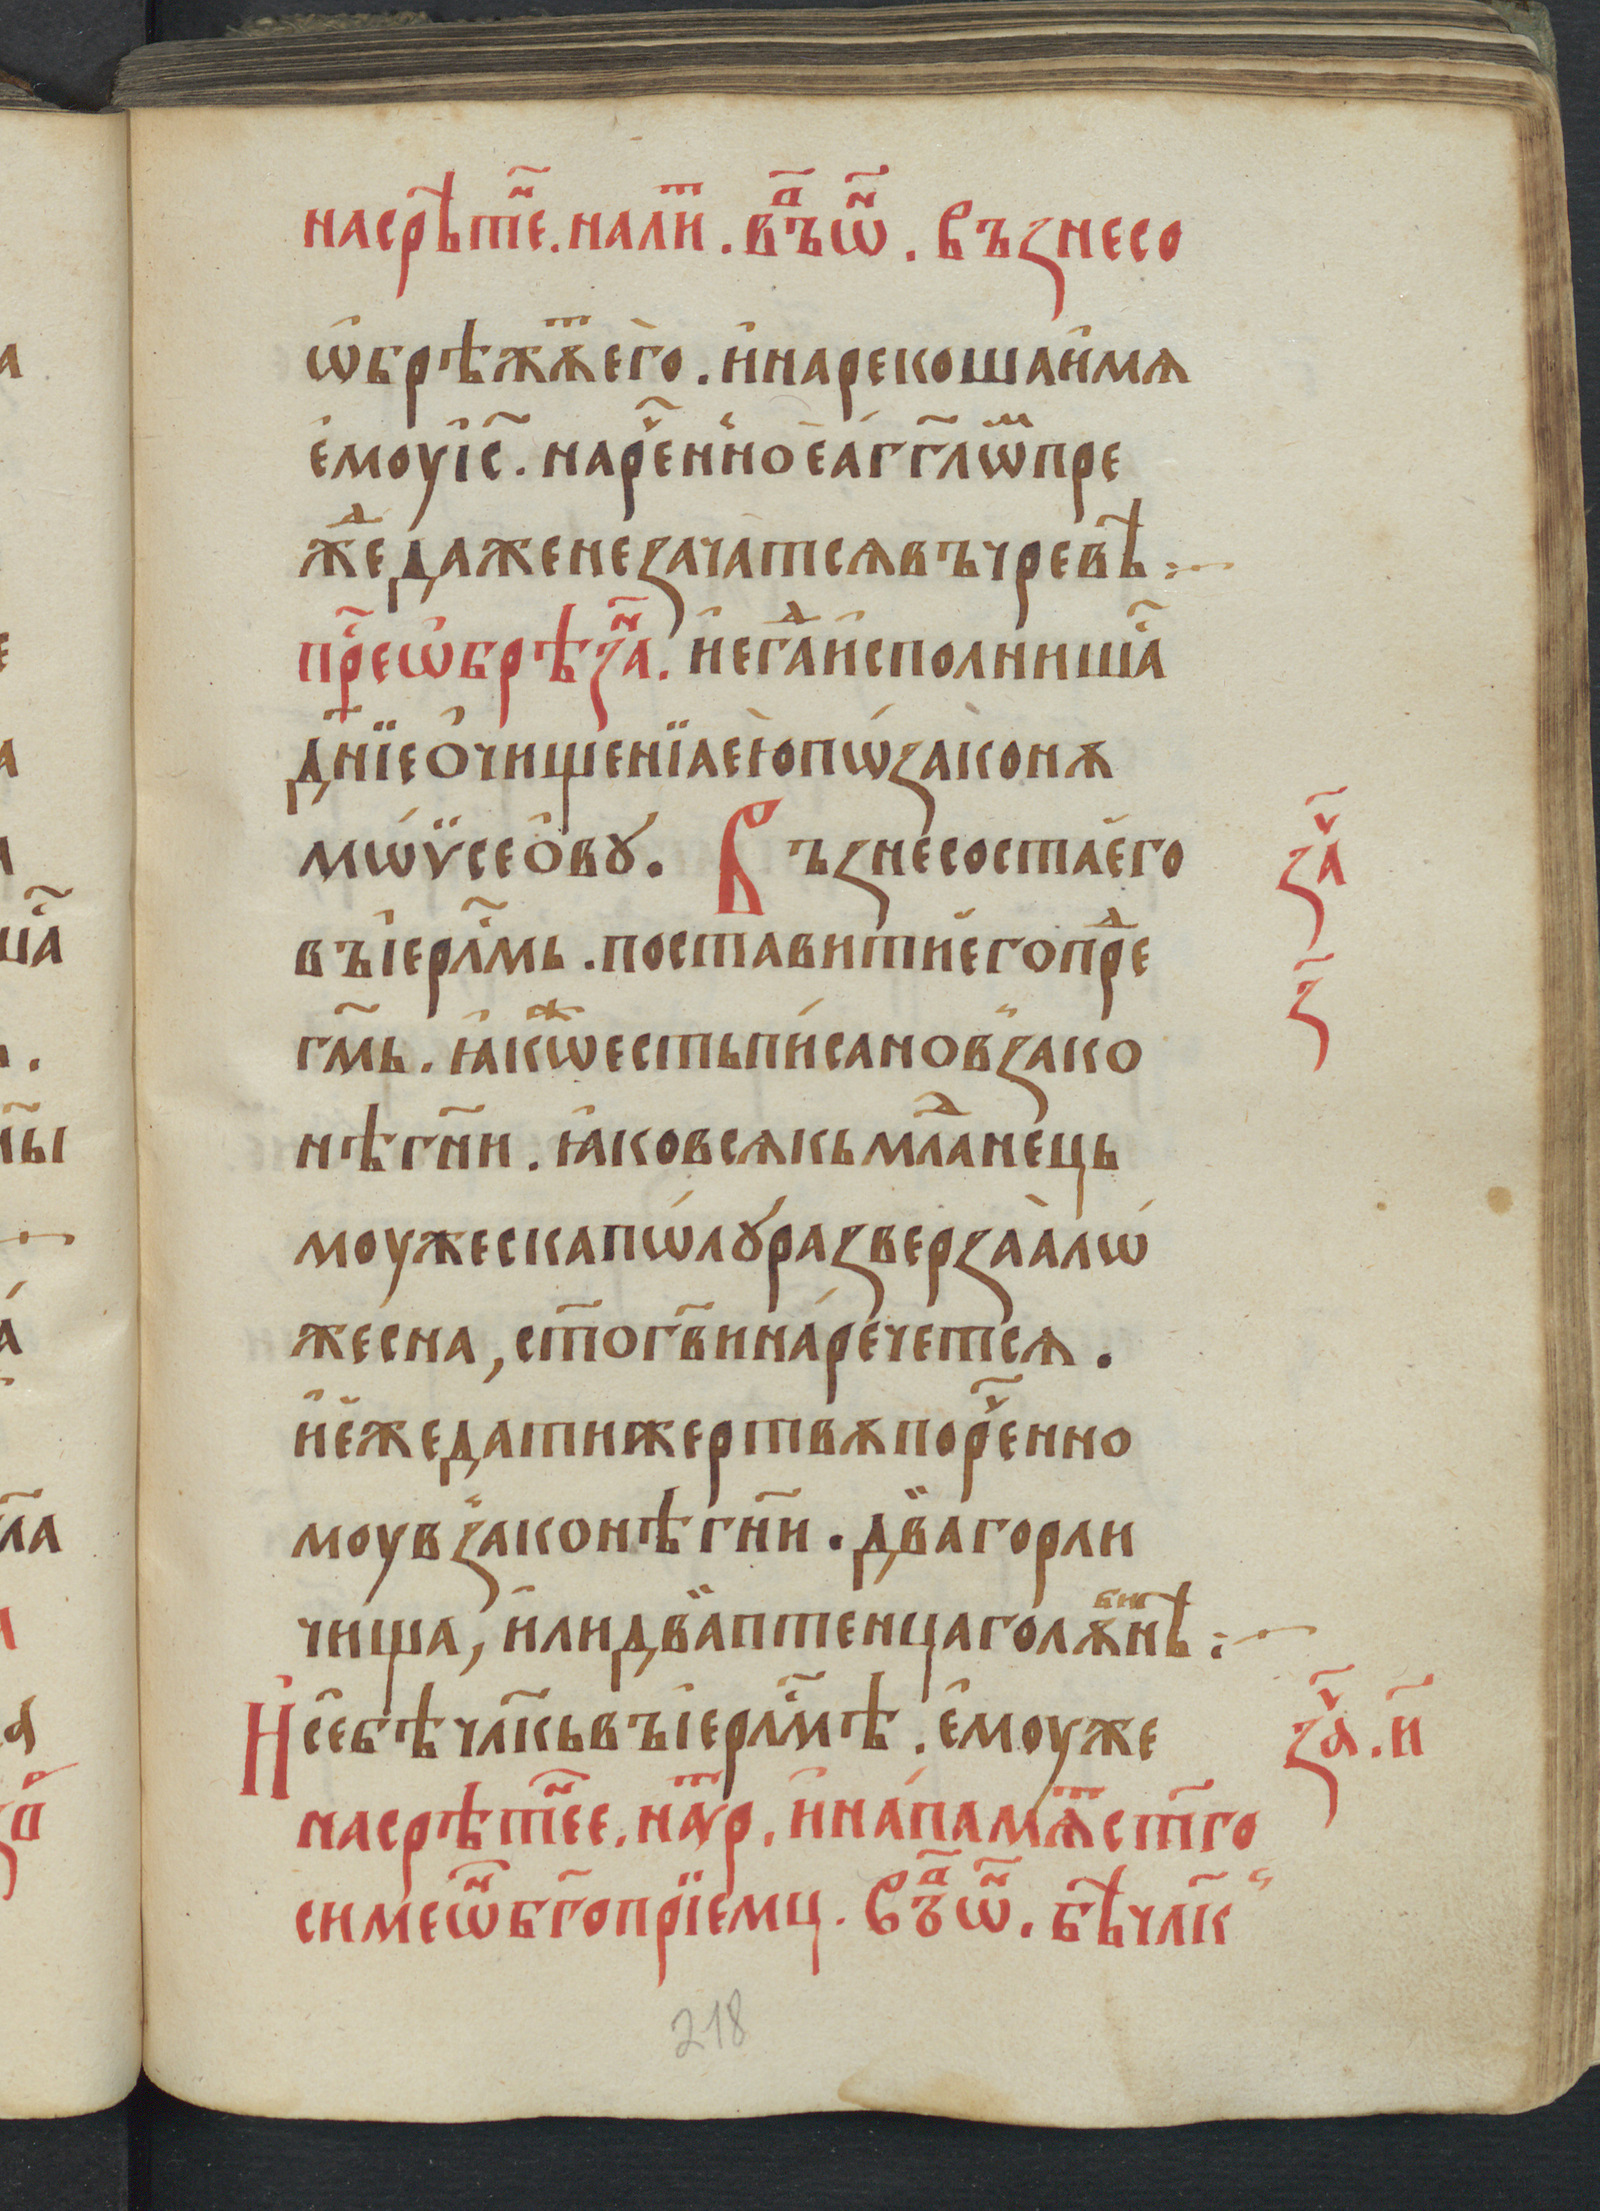 насрѣтⷩ҇е. налиⷮ. вⷣ҇ъѡⷩ҇. възнесо
ѡ҆брѣжѫⷮего̀. и҆нарекошаи҆мѧ
е҆моуі҆с҃. нареⷱ҇нноеа҆́гг҃лѡⷨпре
жеⷣдаженезача́тсѧвъчревѣ:~
преⷭ҇ѡ҆брѣзаⷩ҇. и҆егаⷣи҆сполнишаⷭ҇
дн҃їео҆чищенїаею̀пѡ́зако̀нѫ
мѡ́ѵ̈сео҆вꙋ̀. Възнесостае҆го
въі҆ерлⷭ҇мь. поставитие҆гопреⷣ
гм҃ь. ꙗ҆кⷤѡестьпи́сановⸯзако
нѣгн҃и. ꙗ҆ковсѧкьмлаⷣнець
моужескапѡ́лꙋ́разверза̀алѡ́
жесна, ст҃огв҃ина́речетсѧ.
и҆е҆жедатижертвѫпореⷱ҇нно
моувⸯзаконѣгн҃и. двⸯагорли
чища, и҆лидвⸯаптенцаголѫбинѣ:~
И҆се҆бѣчлк҃ьвъі҆ерлⷭ҇мѣ. е҆моуже
насрѣтⷩ҇ее. наⷮѵр. и҆на́памѧⷮст҃го
симеѡⷩ҇бг҃опрїемц. Въⷣ҇ѡⷩ҇. бѣ҃члк҃ⸯ
заⷱ҇
з҃
заⷱ҇. и҃
218